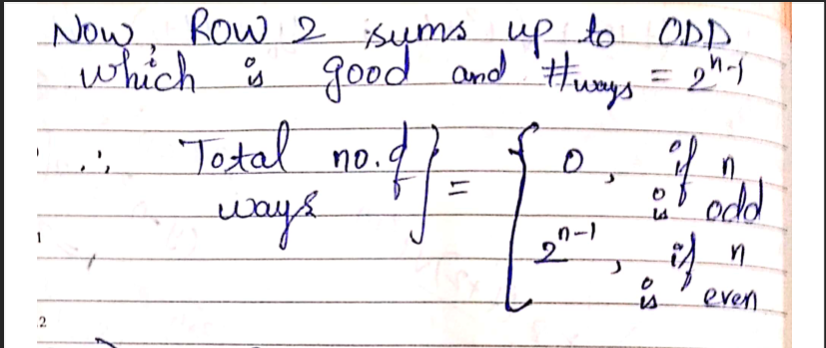 Now, Row 2 sums up to ODD
which is good and #ways = 2^{n-1}
∴ Total no. of ways } = { 0, if n is odd
2^{n-1}, if n is even
1
2